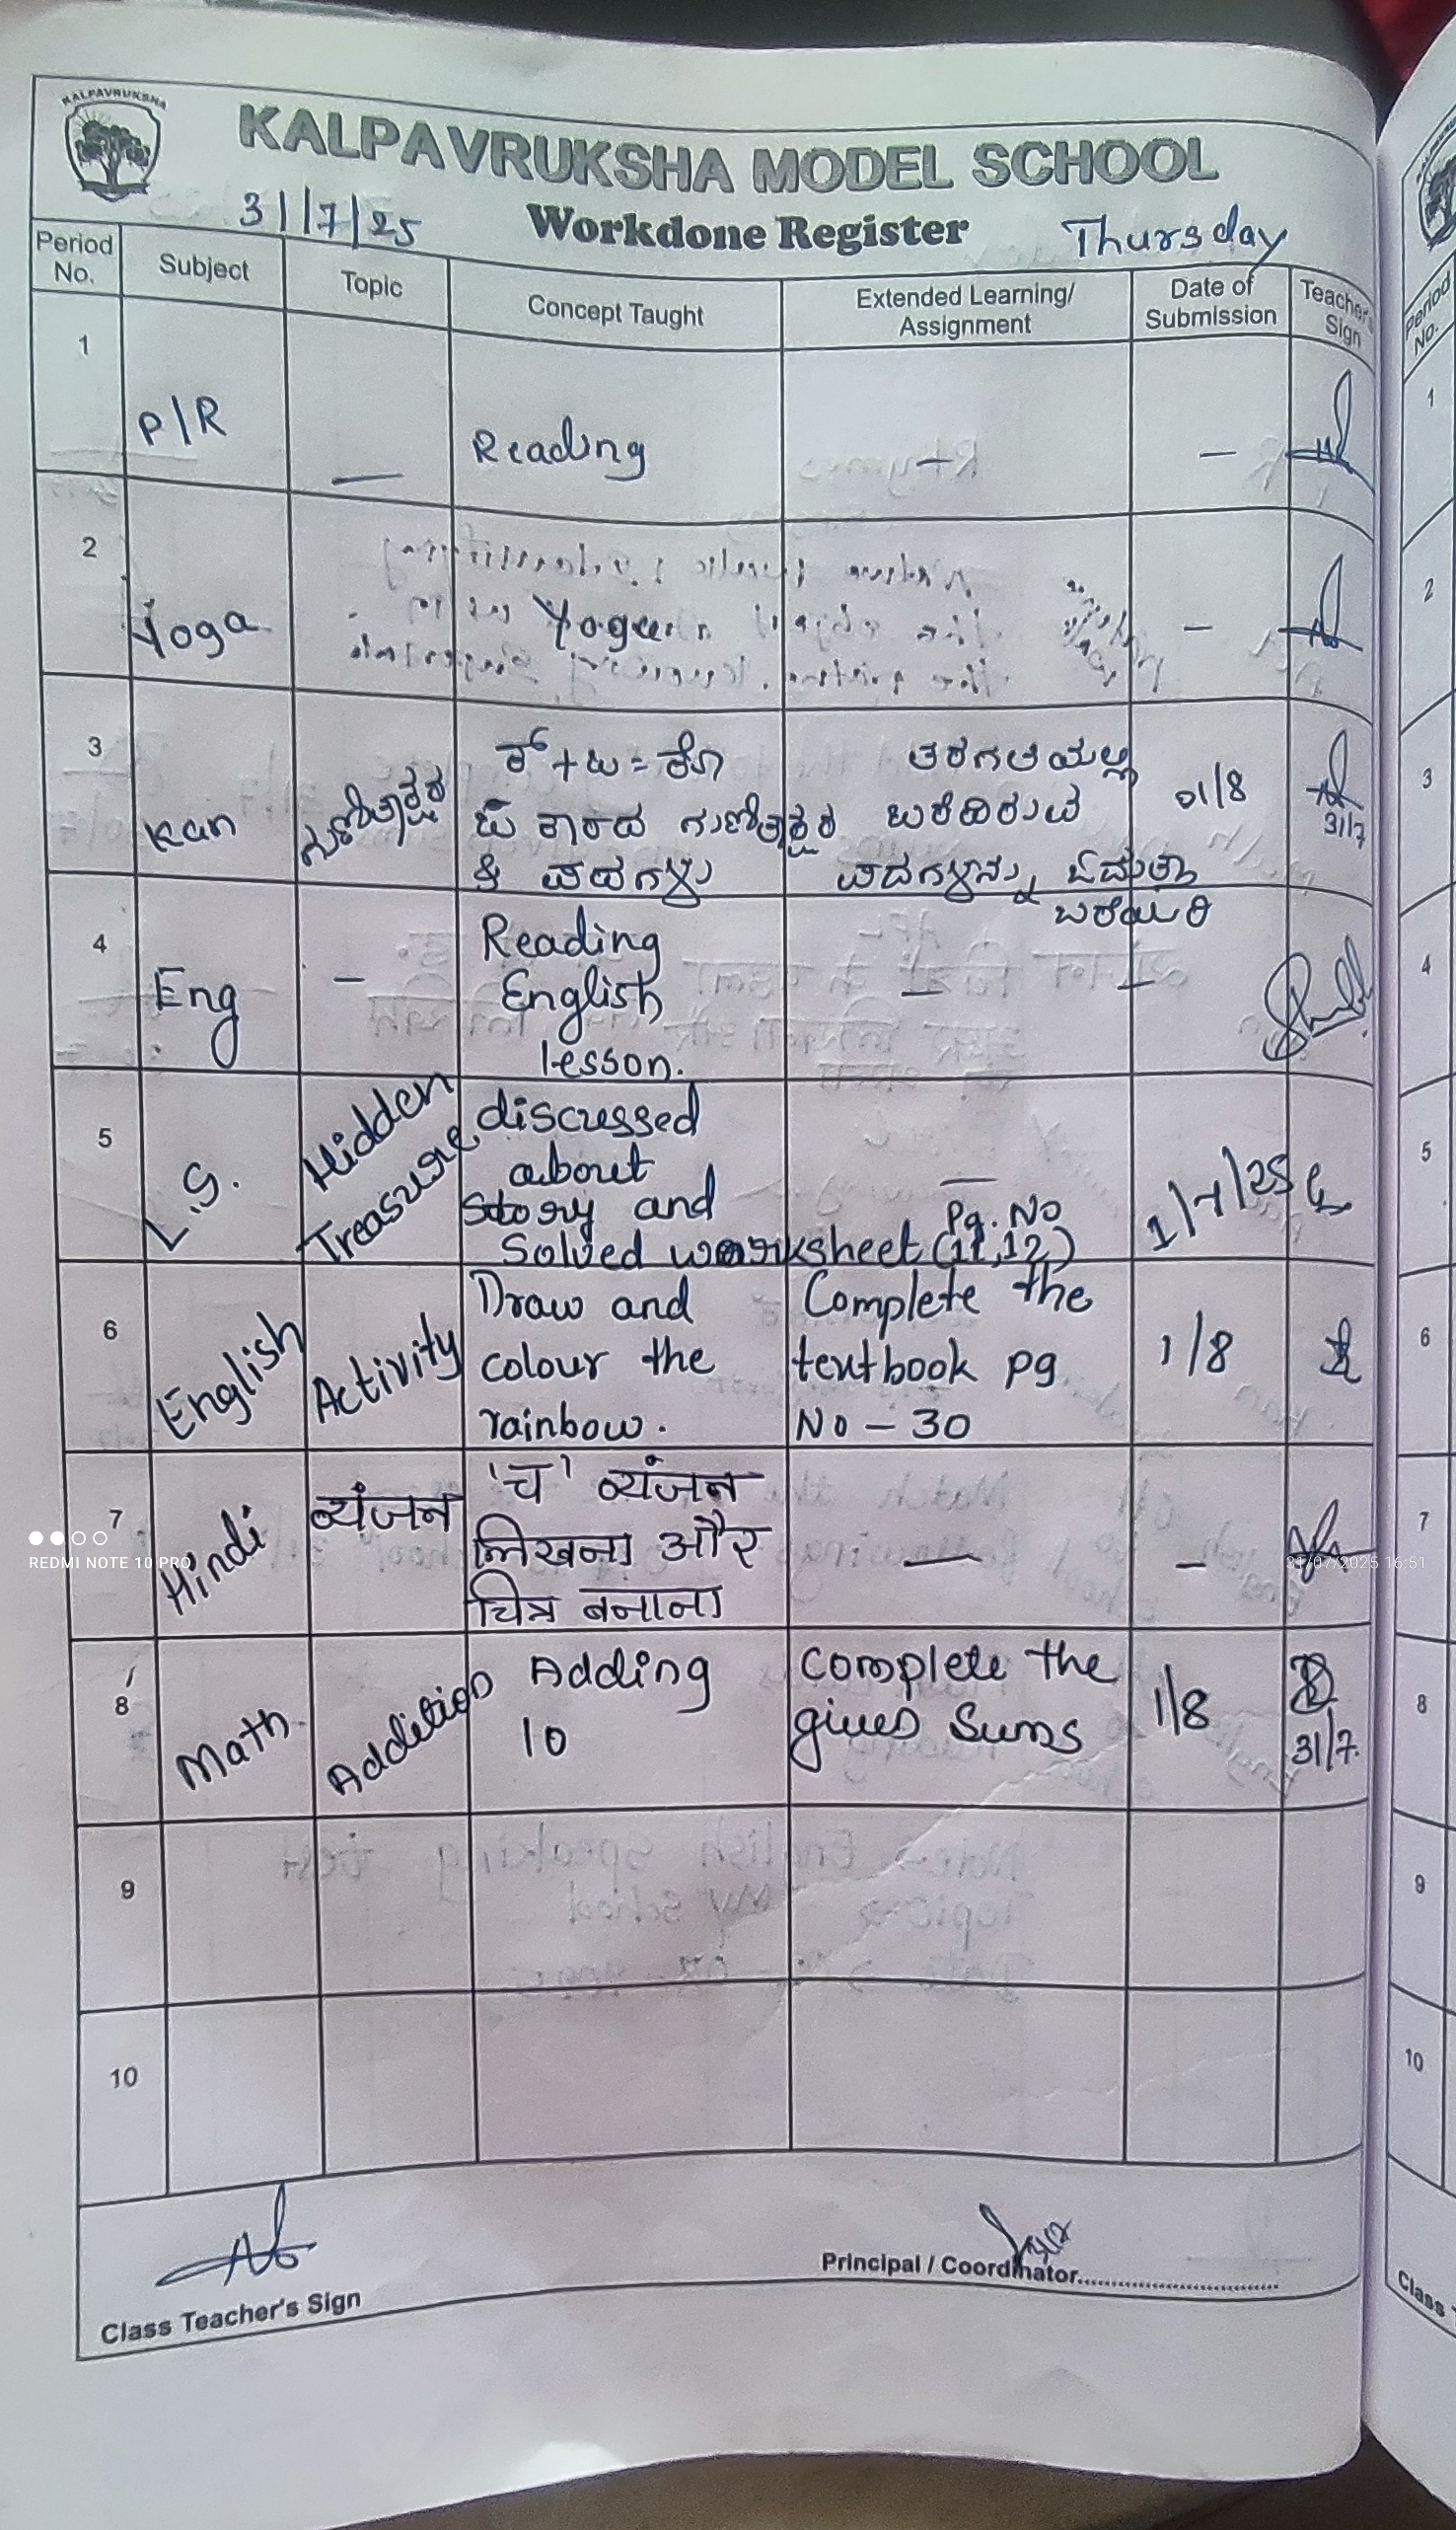 KALPAVRUKSHA
KALPAVRUKSHA MODEL SCHOOL
31/7/25 Workdone Register Thursday
Period No. Subject Topic Concept Taught Extended Learning/ Assignment Date of Submission Teacher's Sign
1 P/R — Reading — —
2 Yoga Yoga —
3 Kan ಗುಣಿತಾಕ್ಷರ
ಗುಣಿತಾಕ್ಷರ
ಪದಗಳು
ತರಗತಿಯಲ್ಲಿ
ಬರೆದಿರುವ
ಪದಗಳನ್ನು
ಬರೆಯಿರಿ
01/8
31/7
4 Eng — Reading
English — —
lesson.
5 L.S. Hidden
Treasure
discussed
about
story and
Solved worksheet (11,12)
—
Pg. No
6 English Activity
Draw and
colour the
rainbow.
Complete the
textbook pg
No – 30
1/8
7 Hindi व्यंजन
'च' व्यंजन
लिखना और
चित्र बनाना
— —
8 Math Addition
Adding
10
Complete the
given Sums
1/8
31/7.
9
10
Class Teacher's Sign
Principal / Coordinator
REDMI NOTE 10 PRO
31/07/2025 16:51
Period No.
1
2
3
4
5
6
7
8
9
10
Class